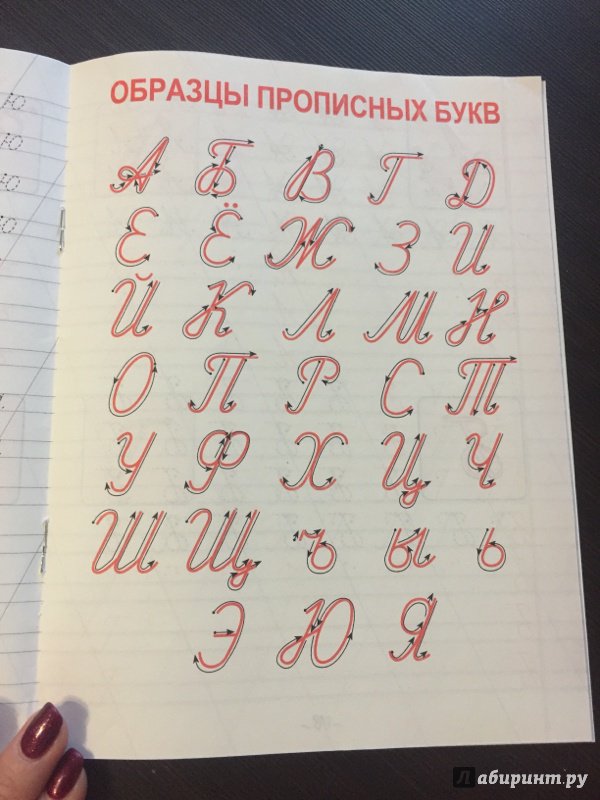 ОБРАЗЦЫ ПРОПИСНЫХ БУКВ
А Б В Г Д
Е Ё Ж З И
Й К Л М Н
О П Р С Т
У Ф Х Ц Ч
Ш Щ ъ ы ь
Э Ю Я
ю
ю
ю
ю
Лабиринт.ру